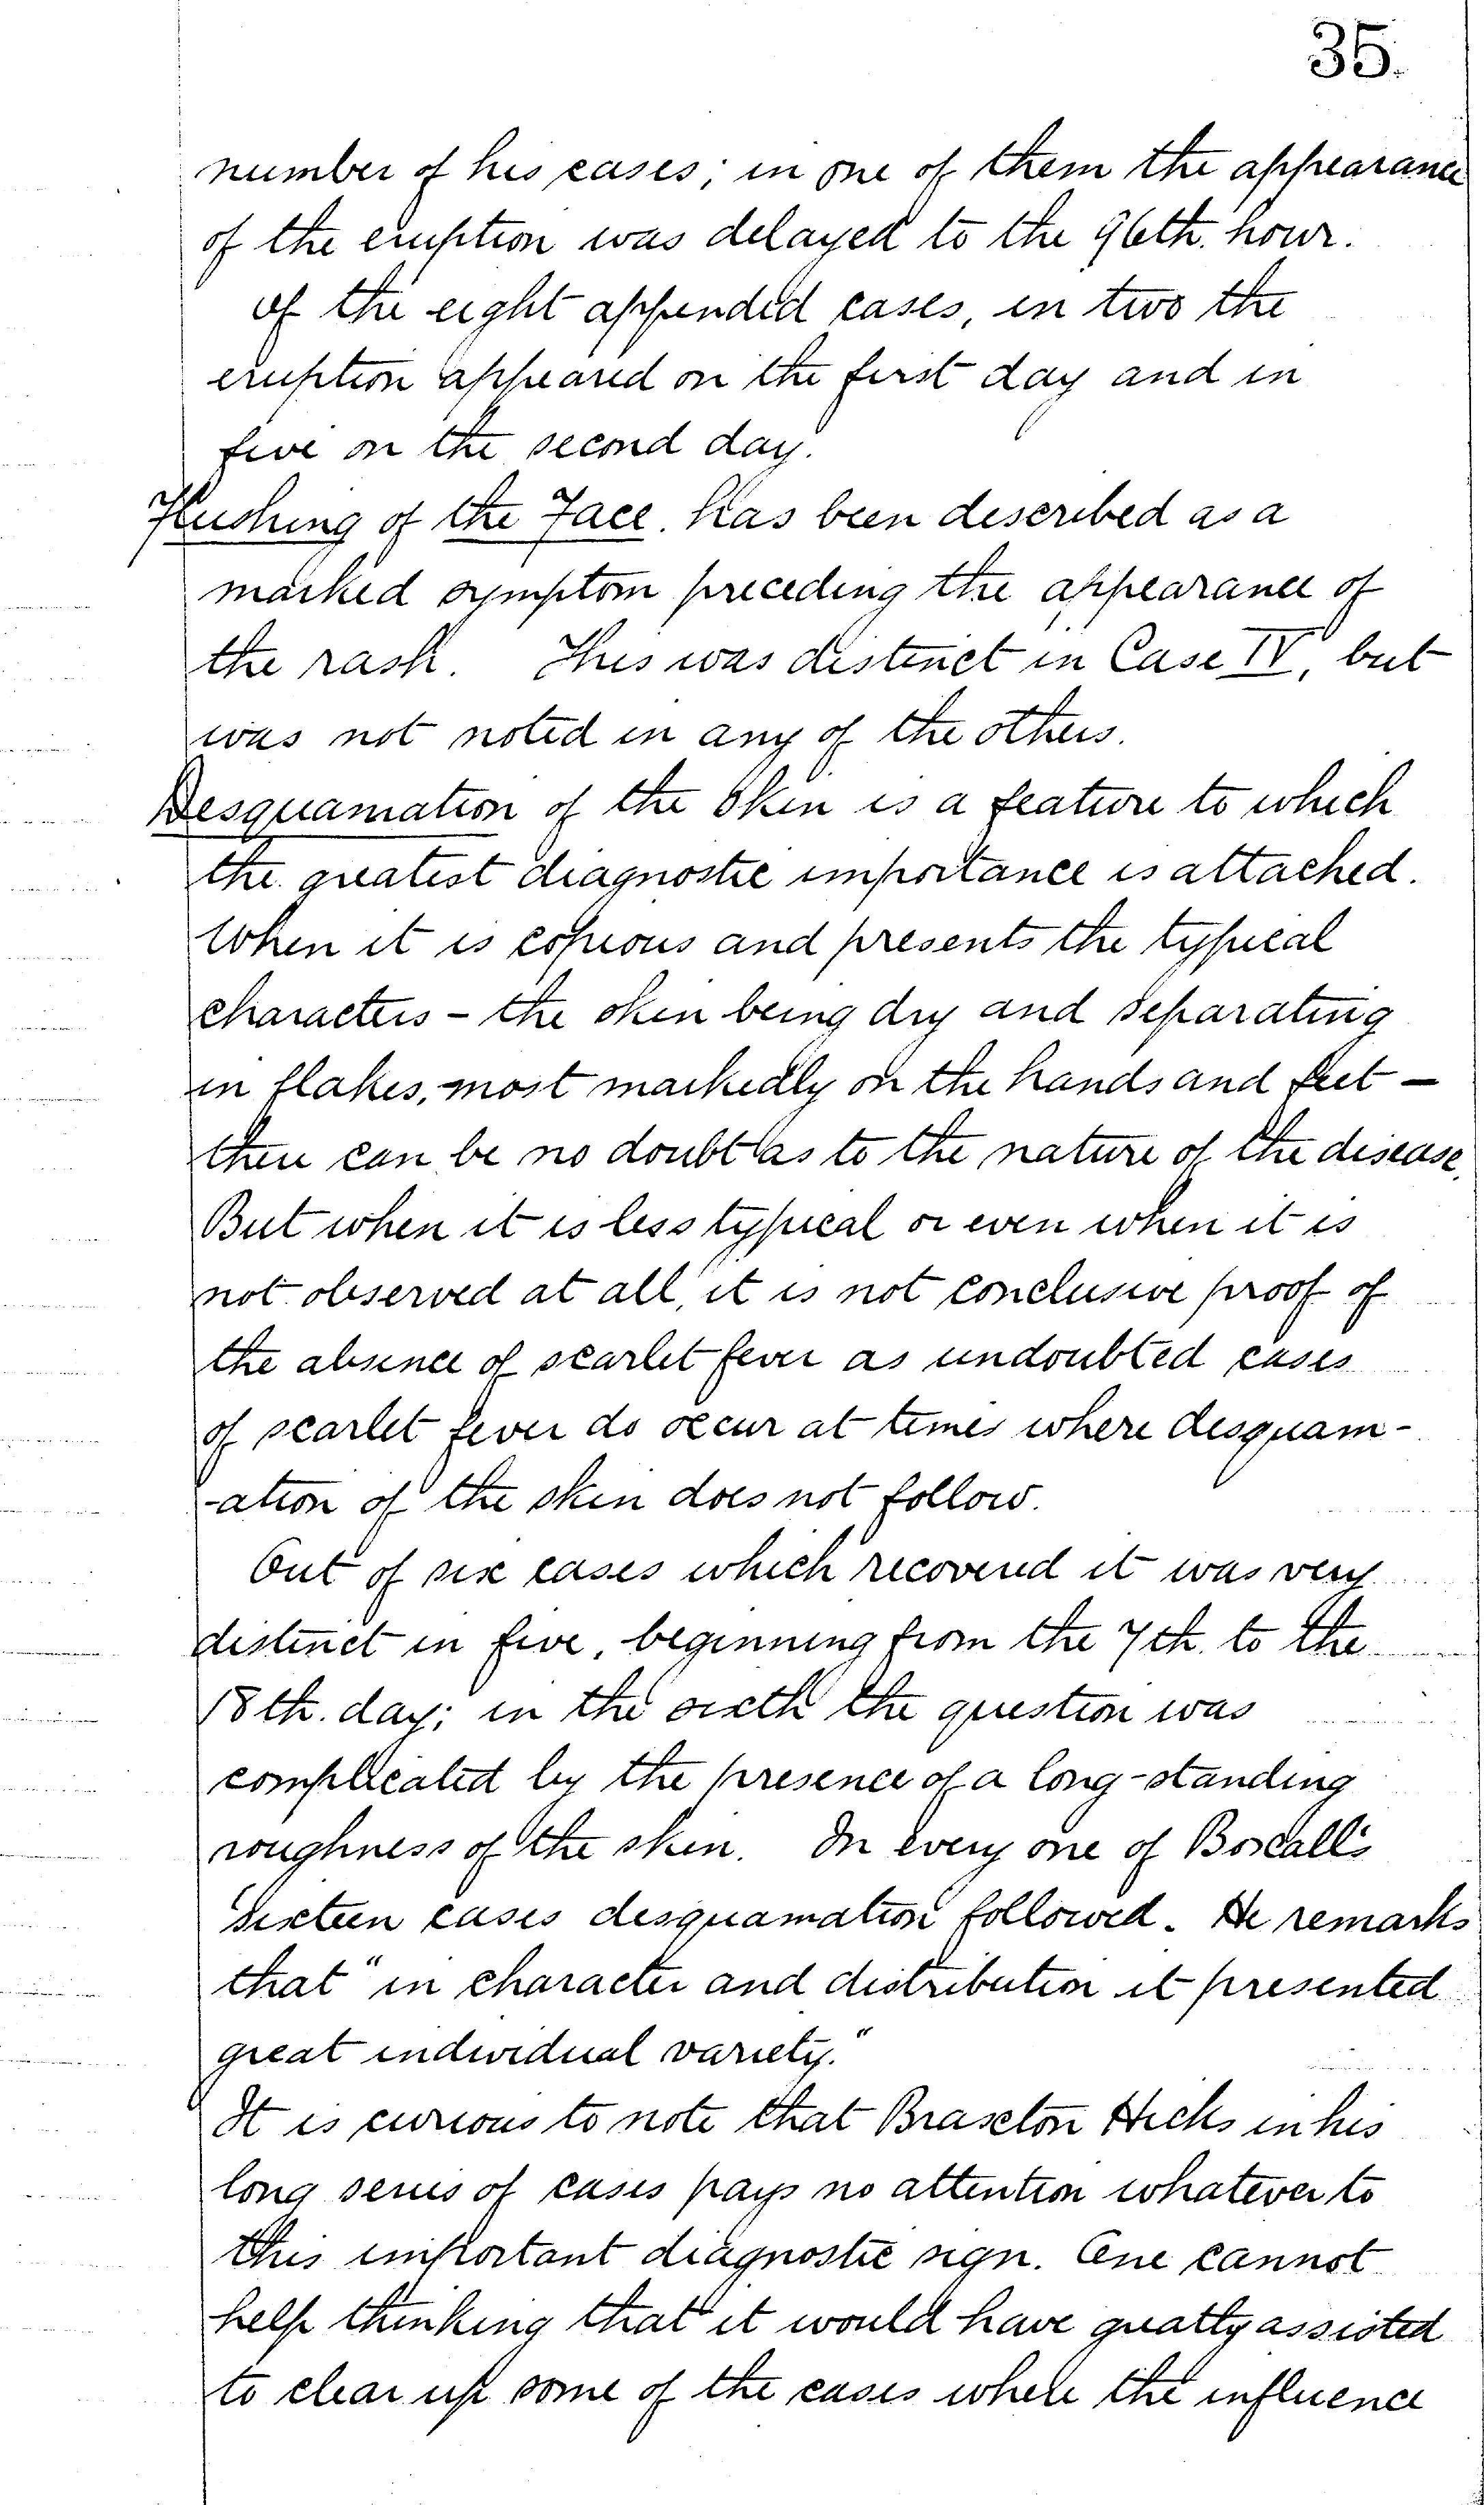 35.
number of his cases; in one of them the appearance
of the eruption was delayed to the 96th. hour.
Of the eight appended cases, in two the
eruption appeared on the first day and in
five on the second day.
Flushing of the Face. has been described as a
marked symptom preceding the appearance of
the rash. This was distinct in Case IV, but
was not noted in any of the others.
Desquamation of the Skin is a feature to which
the greatest diagnostic importance is attached.
When it is copious and presents the typical
characters - the skin being dry and separating
in flakes, most markedly on the hands and feet -
there can be no doubt as to the nature of the disease.
But when it is less typical or even when it is
not observed at all, it is not conclusive proof of
the absence of scarlet fever as undoubted cases
of scarlet fever do occur at times where desquam-
-ation of the skin does not follow.
Out of six cases which recovered it was very
distinct in five, beginning from the 7th. to the
18th. day; in the sixth the question was
complicated by the presence of a long-standing
roughness of the skin. In every one of Boxall's
sixteen cases desquamation followed. He remarks
that "in character and distribution it presented
great individual variety."
It is curious to note that Braxton Hicks in his
long series of cases pays no attention whatever to
this important diagnostic sign. One cannot
help thinking that it would have greatly assisted
to clear up some of the cases where the influence